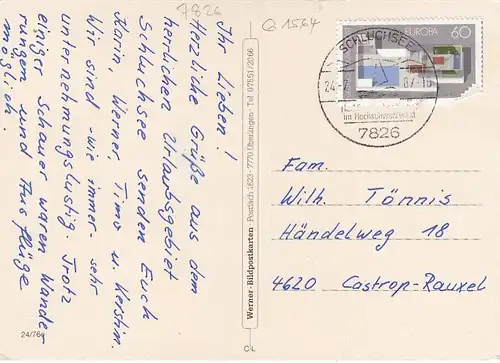 7826
Q 1564
Ihr Lieben!
Herzliche Grüße aus dem
herrlichen Urlaubsgebiet
Schluchsee senden Euch
Karin, Werner, Timo u. Kerstin.
Wir sind - wie immer sehr
unternehmungslustig. Trotz
einiger Schauer waren Wander
rungen und Ausflüge
möglich.
24/76
Werner-Bildpostkarten · Postfach 1623 · 7770 Überlingen · Tel 07551/2066
CL
EUROPA 60
SCHLUCHSEE
24.-7. 87-16
im Hochschwarzwald
7826
Fam.
Wilh. Tönnis
Händelweg 18
4620 Castrop-Rauxel